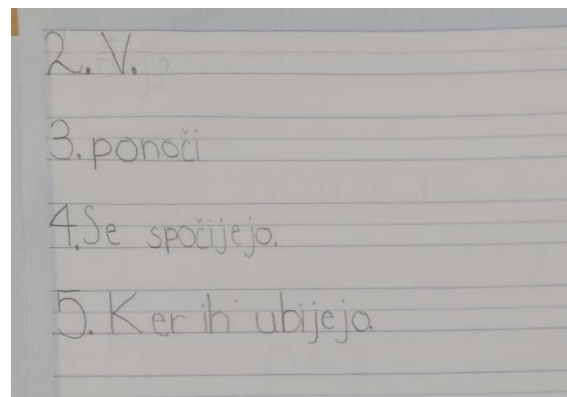 2. V.
3. ponoči
4. Se spočijejo.
5. Ker ih ubijejo.